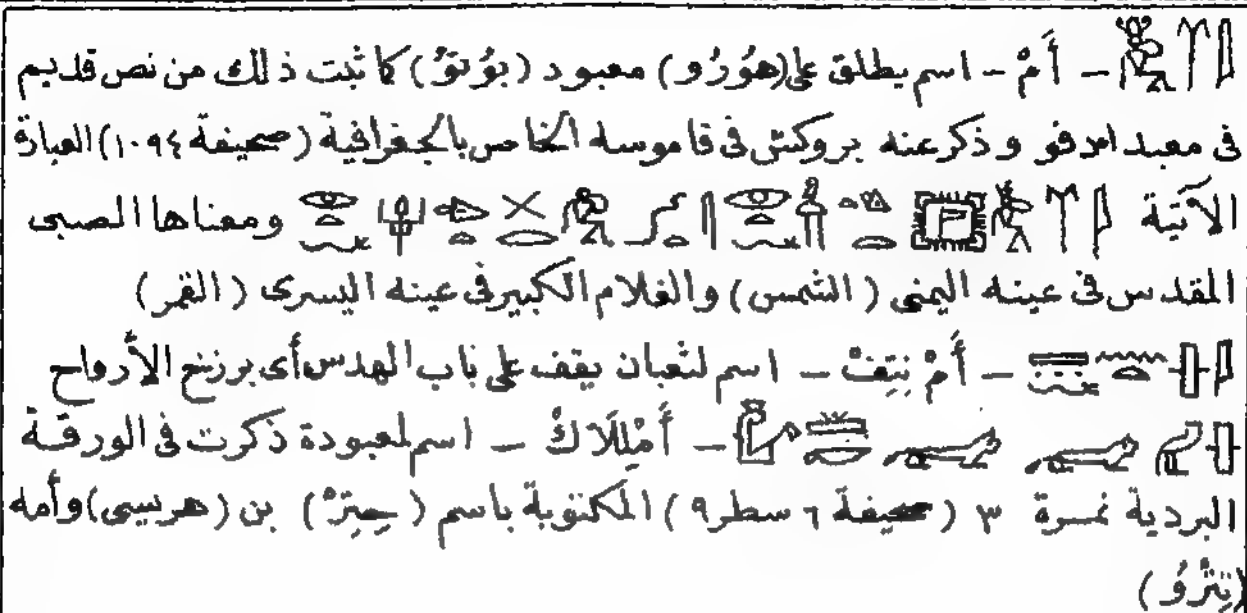 – أَمْ – اسم يطلق على (هَوُرُو) معبود (بُوُتوُ) كما ثبت ذلك من نص قديم
فى معبد ادفو وذكر عنه بروكش فى قاموسه الخامس بالجغرافية (صحيفة ١٠٩٤) العبارة
الآتية ومعناها الصبى
المقدس فى عينه اليمنى (الشمس) والغلام الكبير فى عينه اليسرى (القمر)
– أَمْ نِتِفْ – اسم لثعبان يقف على باب الهدس أى برزخ الأرواح
– أَمْلِلَاكْ – اسم لمعبودة ذكرت فى الورقة
البردية نمرة ٣ (صحيفة ٦ سطر ٩) المكتوبة باسم (حِتِرْ) بن (هرسيسى) وأمه
(تِتْرُو)